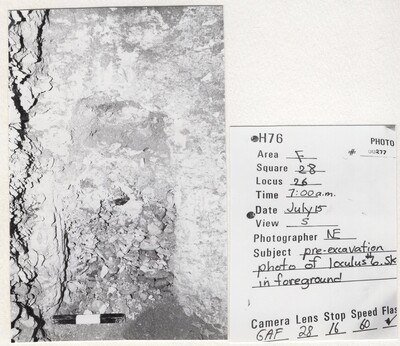 H76
PHOTO
# UN277
Area F
Square 28
Locus 26
Time 7:00 a.m.
Date July 15
View S
Photographer NE
Subject pre-excavation
photo of loculus #6. Sk
in foreground
Camera Lens Stop Speed Flas
GAF 28 16 60 ✓